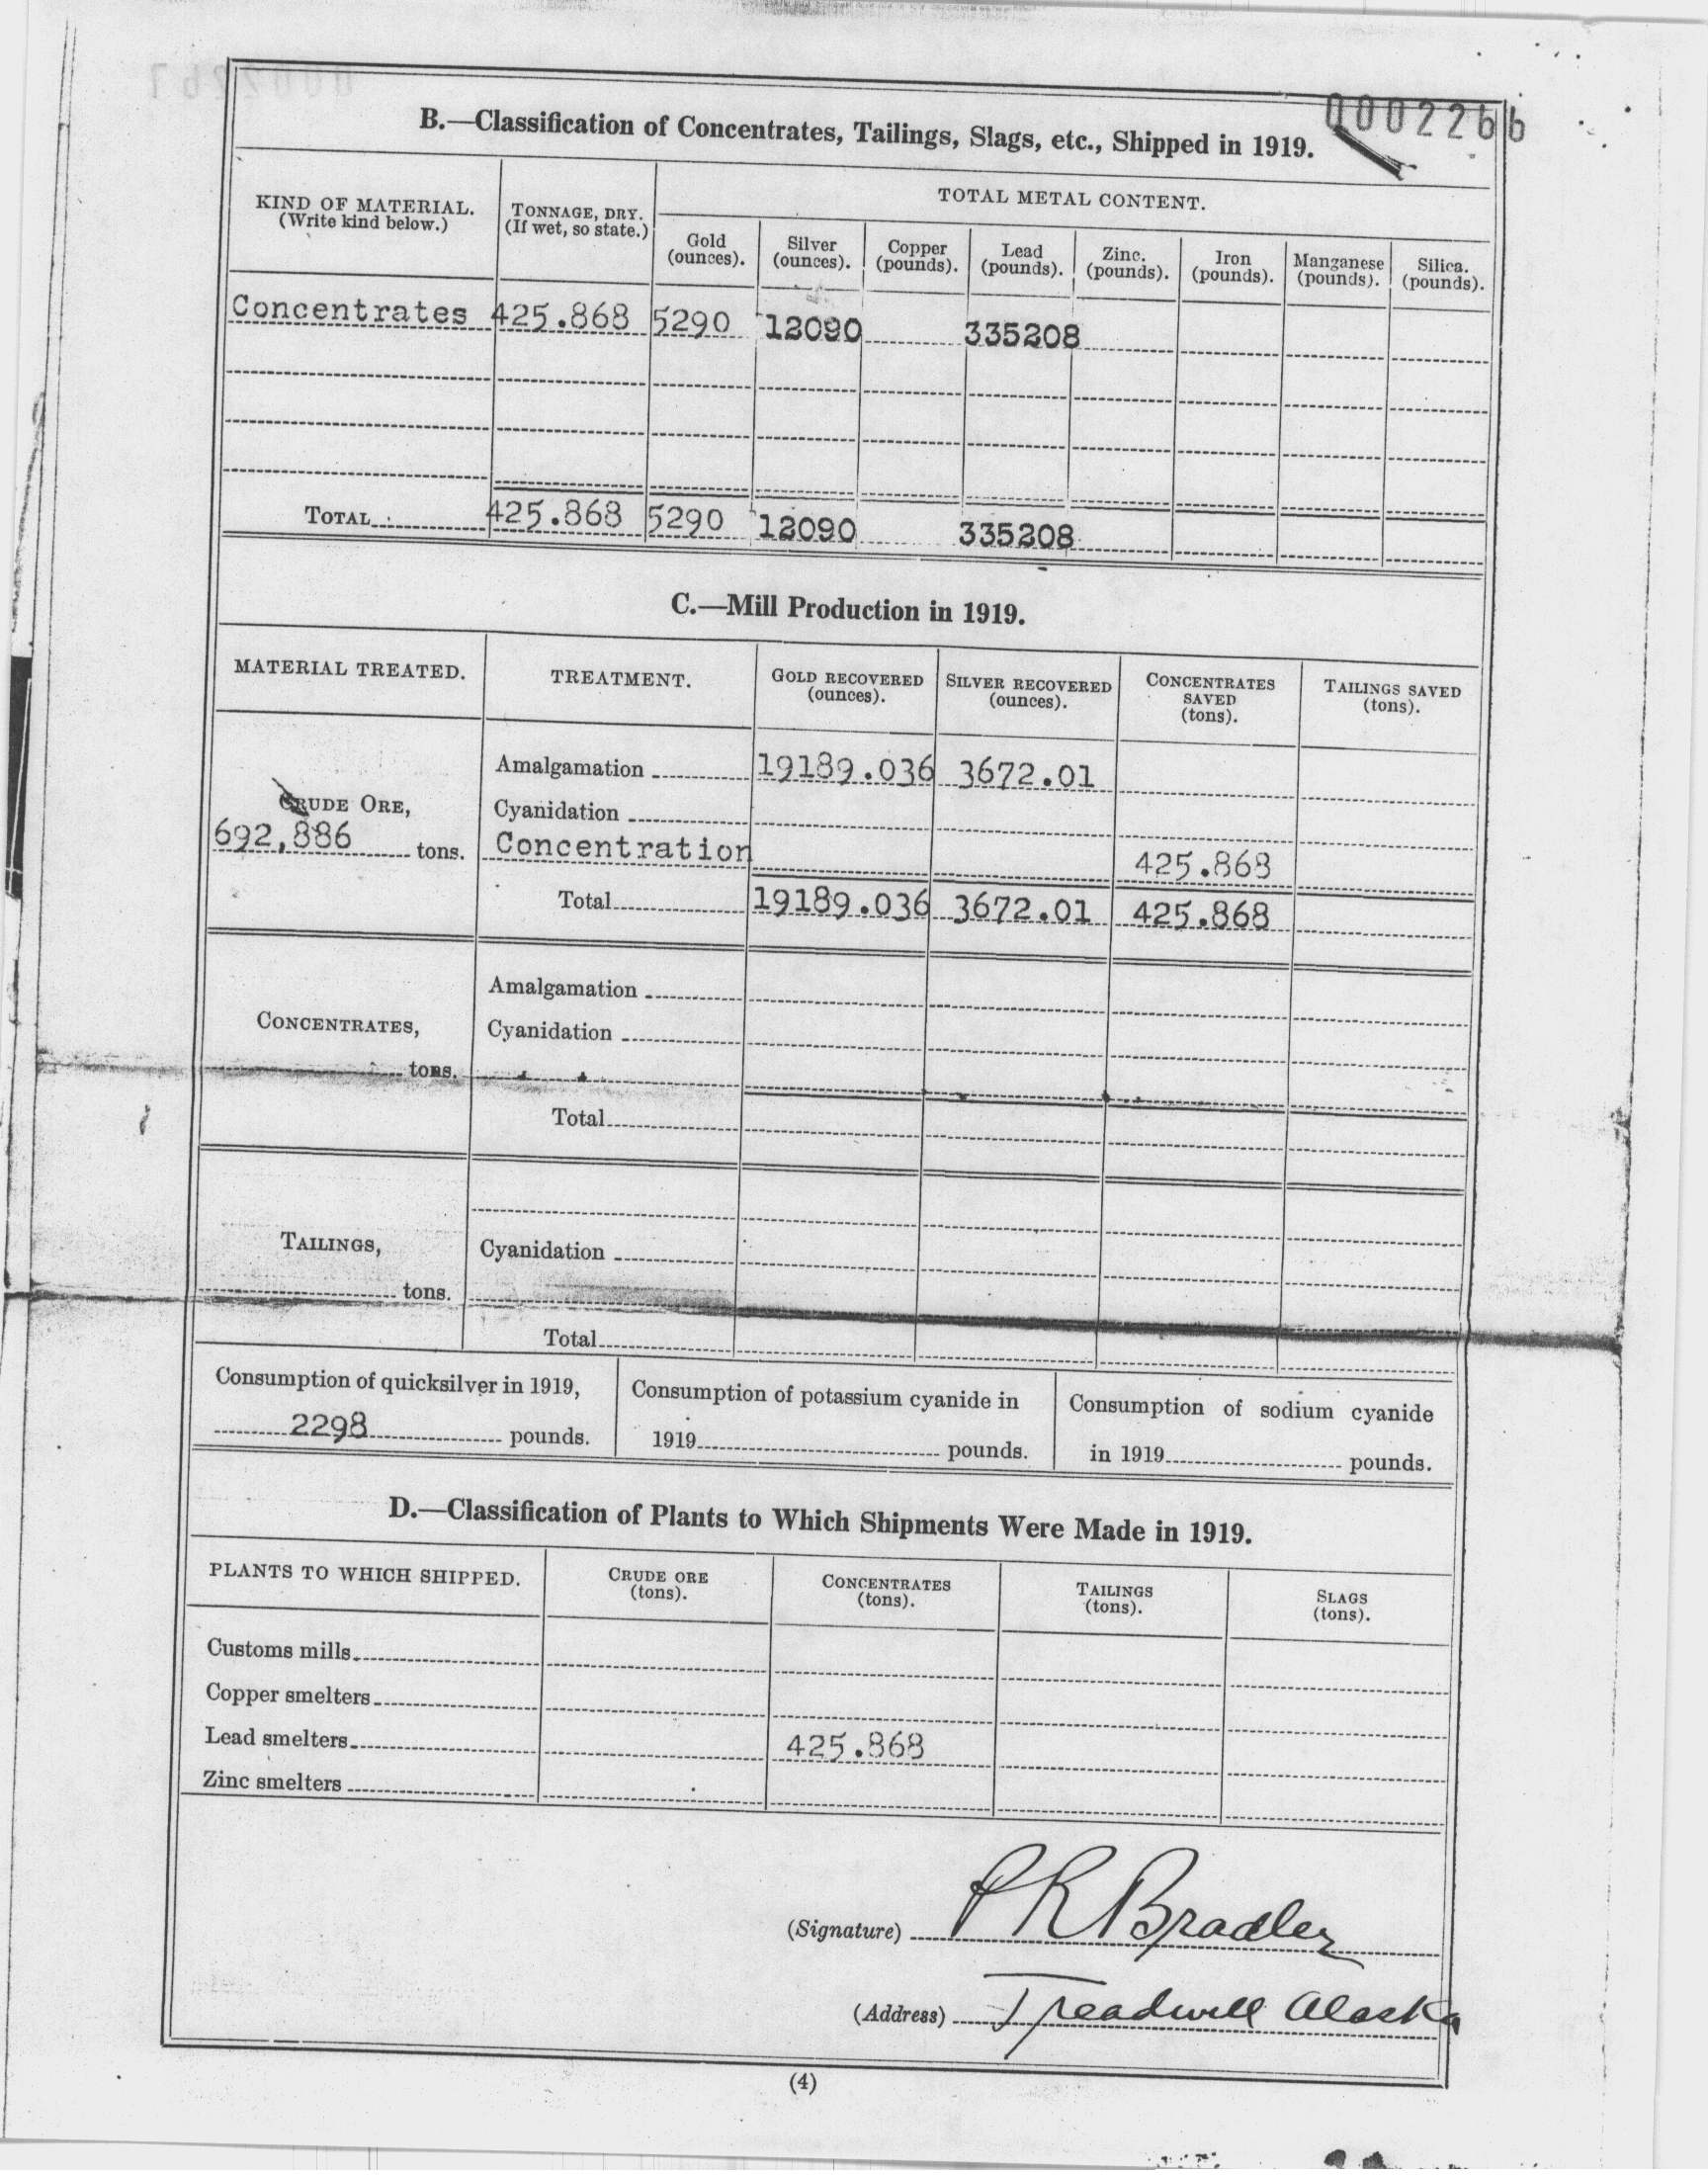 0002266
B.—Classification of Concentrates, Tailings, Slags, etc., Shipped in 1919.
KIND OF MATERIAL. (Write kind below.) TONNAGE, DRY. (If wet, so state.) TOTAL METAL CONTENT.
Gold (ounces). Silver (ounces). Copper (pounds). Lead (pounds). Zinc. (pounds). Iron (pounds). Manganese (pounds). Silica. (pounds).
Concentrates 425.868 5290 12090 335208
TOTAL 425.868 5290 12090 335208
C.—Mill Production in 1919.
MATERIAL TREATED. TREATMENT. GOLD RECOVERED (ounces). SILVER RECOVERED (ounces). CONCENTRATES SAVED (tons). TAILINGS SAVED (tons).
Amalgamation 19189.036 3672.01
CRUDE ORE, Cyanidation
692,886 tons. Concentration 425.868
Total 19189.036 3672.01 425.868
Amalgamation
CONCENTRATES, Cyanidation
tons.
Total
TAILINGS, Cyanidation
tons.
Total
Consumption of quicksilver in 1919, 2298 pounds.
Consumption of potassium cyanide in 1919 pounds.
Consumption of sodium cyanide in 1919 pounds.
D.—Classification of Plants to Which Shipments Were Made in 1919.
PLANTS TO WHICH SHIPPED. CRUDE ORE (tons). CONCENTRATES (tons). TAILINGS (tons). SLAGS (tons).
Customs mills
Copper smelters
Lead smelters 425.868
Zinc smelters
(Signature) P R Bradley
(Address) Treadwell Alaska
(4)